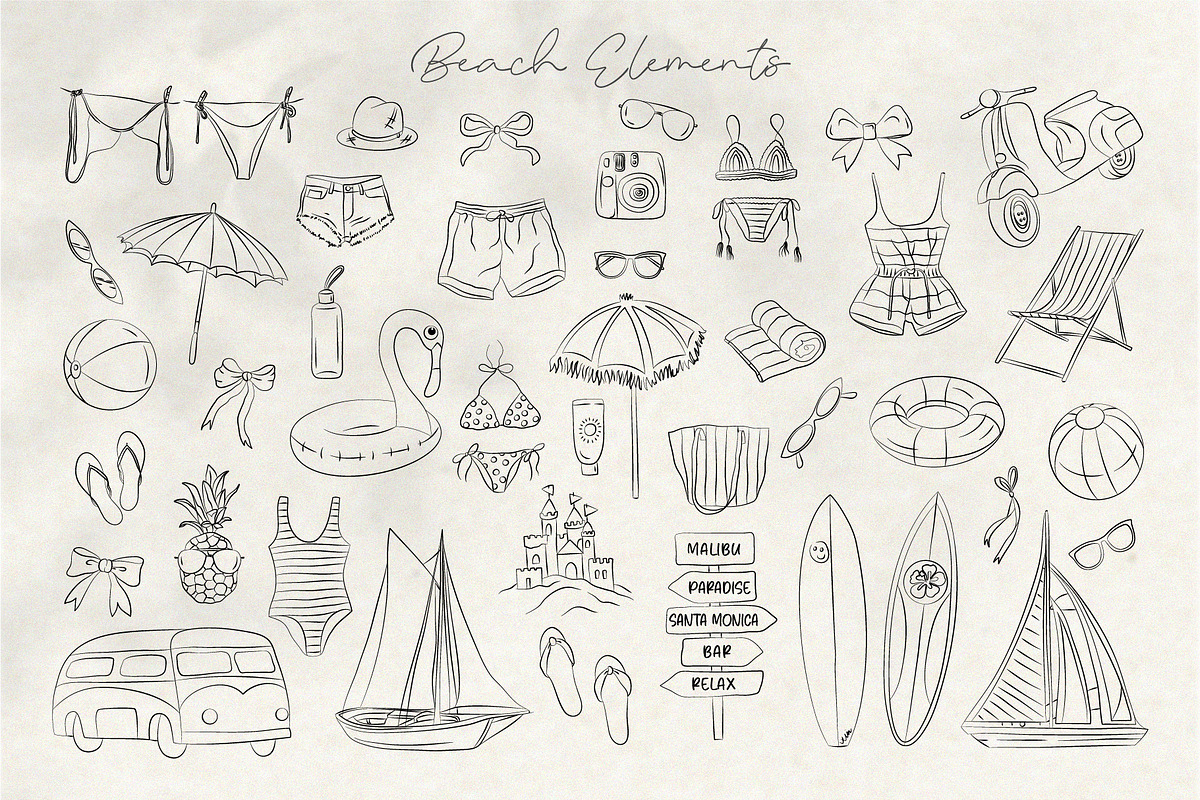 Beach Elements
MALIBU
PARADISE
SANTA MONICA
BAR
RELAX